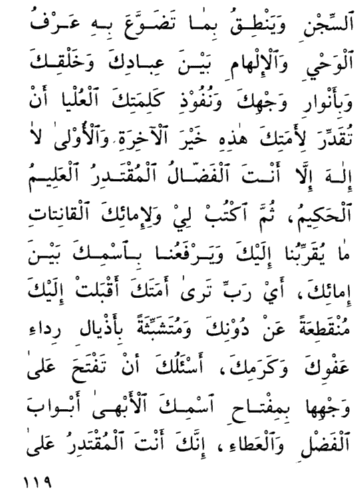 ٱلسِّجْنِ وَيَنْطِقُ بِمٰا تَضَوَّعَ بِهِ عَرْفُ
ٱلْوَحْيِ وَٱلْإِلْهامِ بَيْنَ عِبادِكَ وَخَلْقِكَ
وَبِأَنْوارِ وَجْهِكَ وَنُفُوْذِ كَلِمَتِكَ ٱلْعُلْيا أَنْ
تُقَدِّرَ لِأَمَتِكَ هٰذِهِ خَيْرَ ٱلْآخِرَةِ وَٱلْأُوْلىٰ لاٰ
إِلٰهَ إِلَّا أَنْتَ ٱلْفَضّالُ ٱلْمُقْتَدِرُ ٱلْعَلِيمُ
ٱلْحَكِيمُ، ثُمَّ ٱكْتُبْ لِيْ وَلِإِمائِكَ ٱلْقانِتاتِ
مٰا يُقَرِّبُنا إِلَيْكَ وَيَرْفَعُنا بِٱسْمِكَ بَيْنَ
إِمائِكَ، أَيْ رَبِّ تَرىٰ أَمَتَكَ أَقْبَلَتْ إِلَيْكَ
مُنْقَطِعَةً عَنْ دُوْنِكَ وَمُتَشَبِّثَةً بِأَذْيالِ رِداءِ
عَفْوِكَ وَكَرَمِكَ، أَسْئَلُكَ أنْ تَفْتَحَ عَلىٰ
وَجْهِها بِمِفْتاحِ ٱسْمِكَ ٱلْأَبْهىٰ أَبْوابَ
ٱلْفَضْلِ وَٱلْعَطاءِ، إِنَّكَ أَنْتَ ٱلْمُقْتَدِرُ عَلىٰ
١١٩